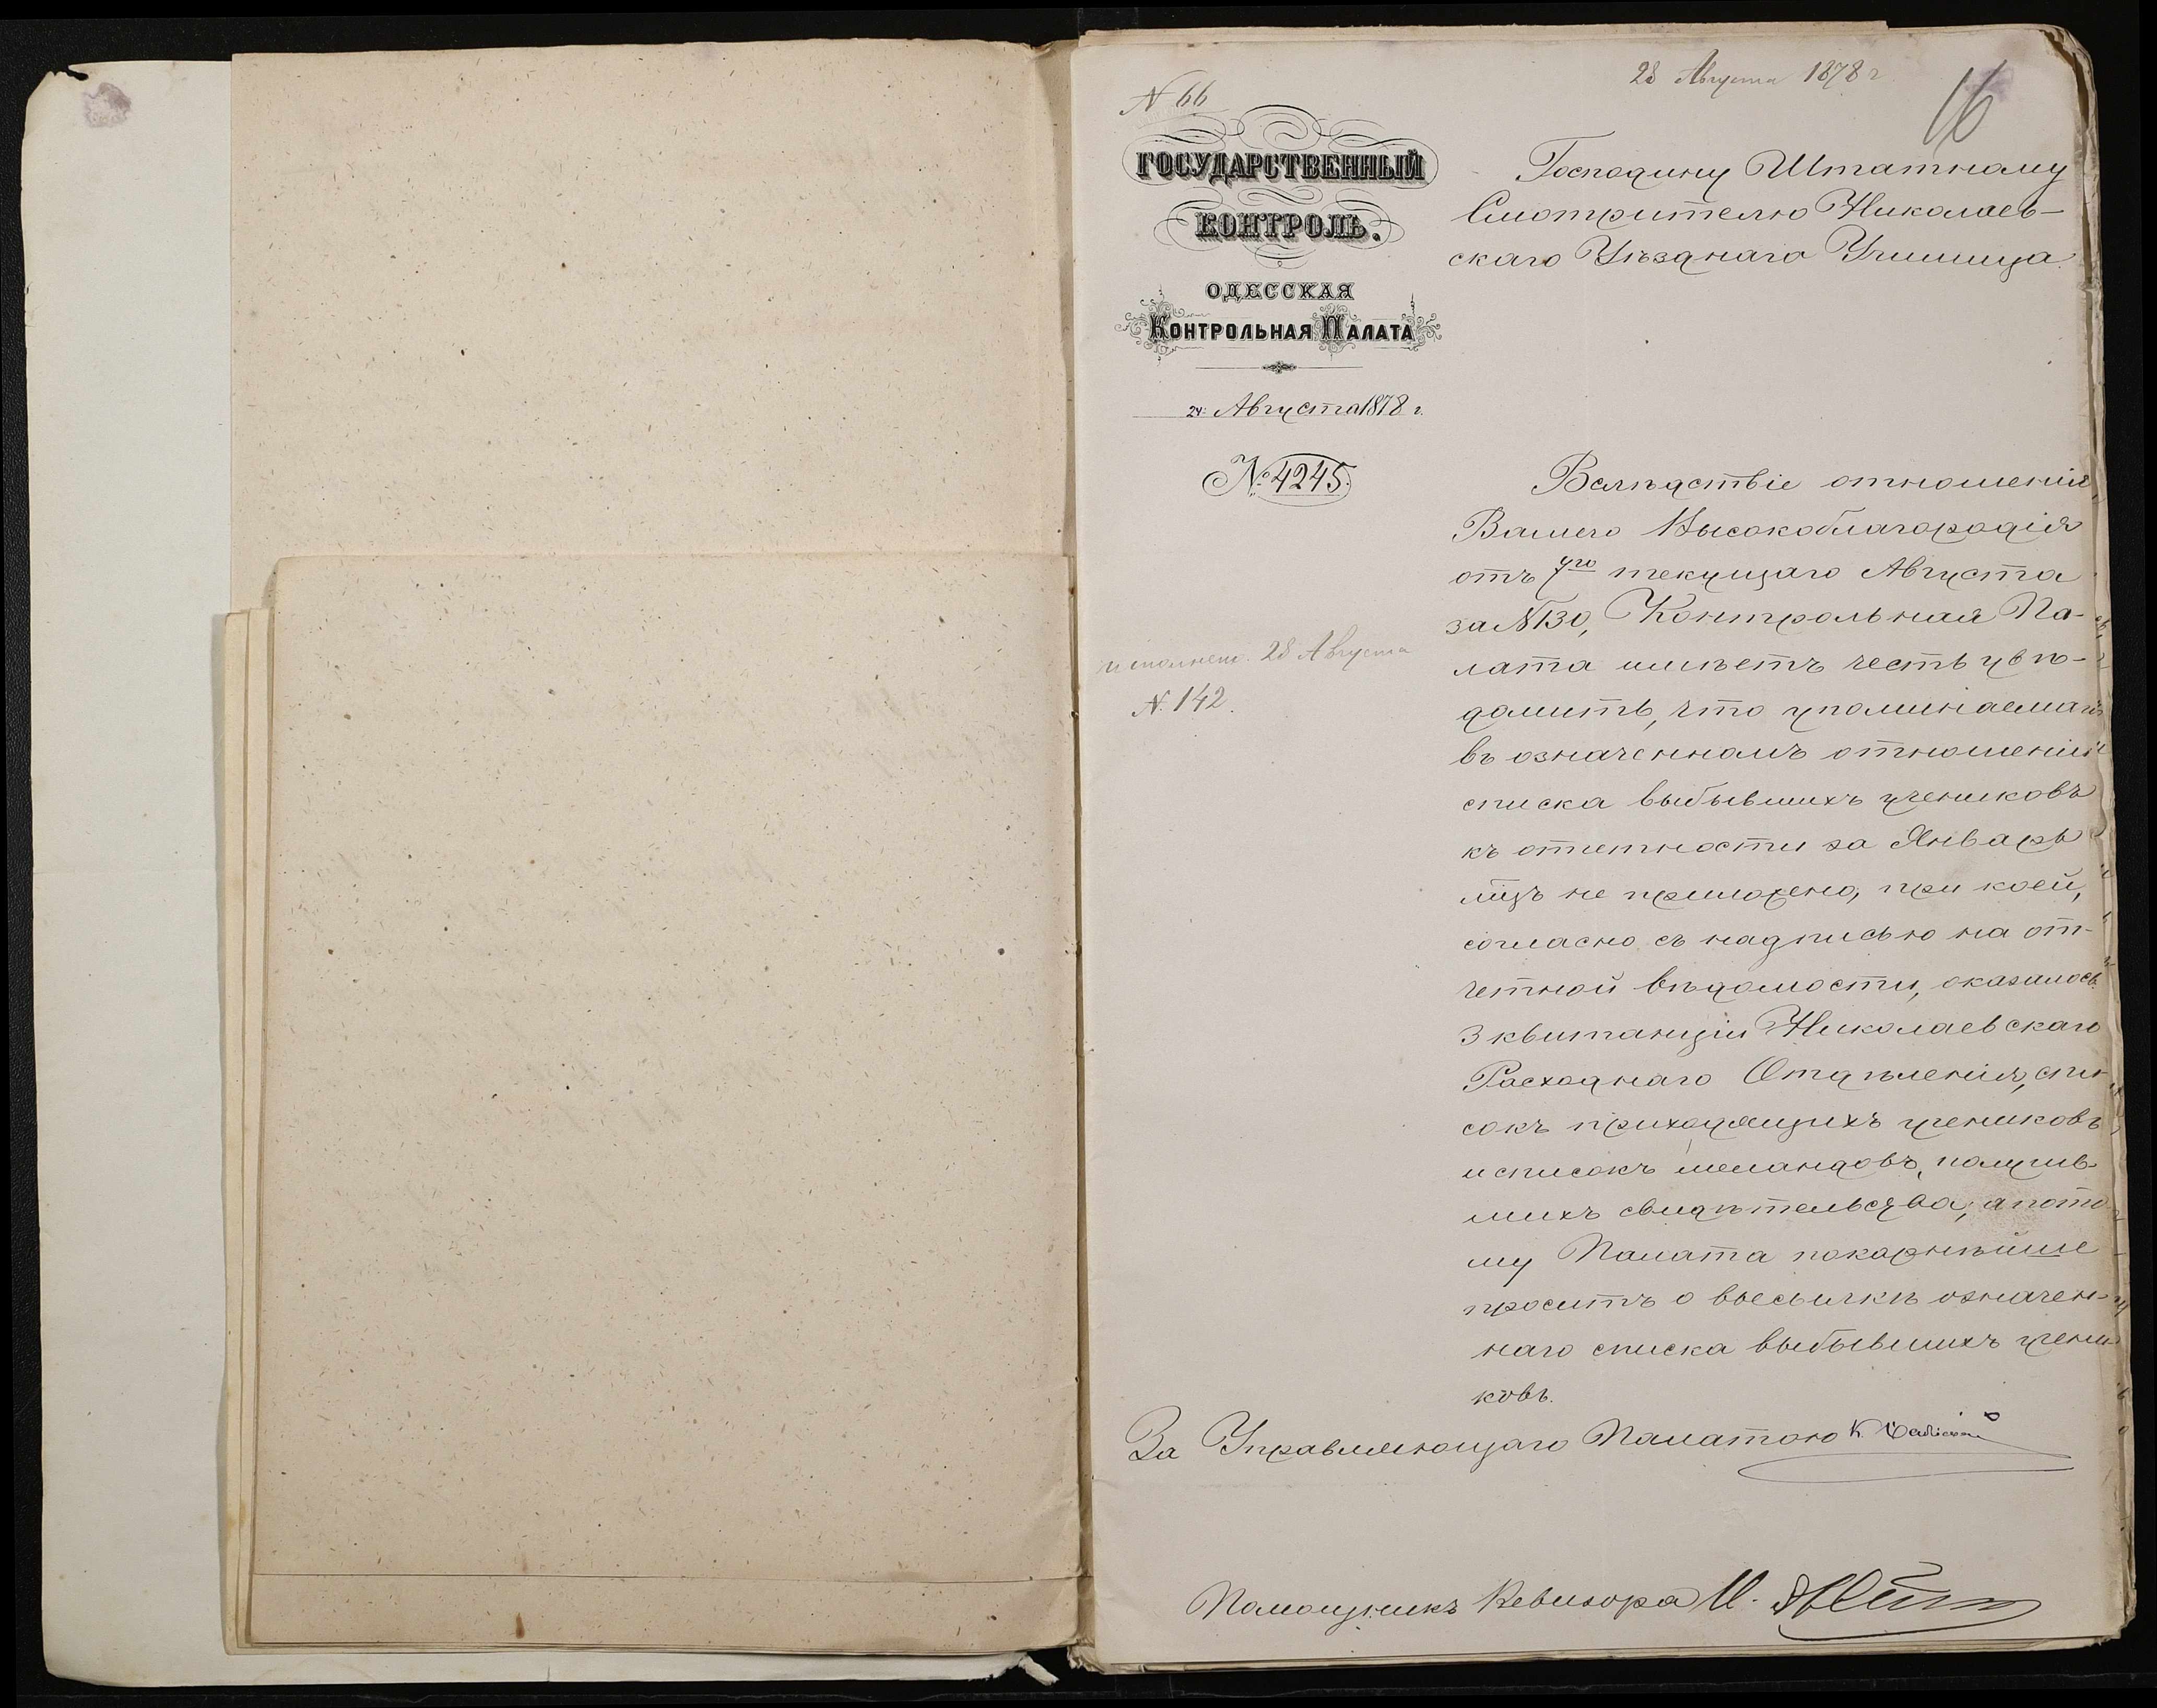 28 Августа 1878 г
16
N 66
ГОСУДАРСТВЕННЫЙ
КОНТРОЛЬ.
ОДЕССКАЯ
КОНТРОЛЬНАЯ ПАЛАТА
24 Августа 1878 г.
№ 4245.
исполнено 28 Августа
N. 142.
Господину Штатному
Смотрителю Николаев-
скаго Уѣзднаго Училища.
Вслѣдствіе отношенія
Вашего Высокоблагородія
отъ 7го текущаго Августа
за № 130, Контрольная Па-
лата имѣетъ честь увѣ-
домить, что упоминаемаго
въ означенномъ отношеніи
списка выбывшихъ учениковъ
къ отчетности за Январь
мцъ не приложено, при коей,
согласно съ надписью на от-
четной вѣдомости, оказалось
3 квитанціи Николаевскаго
Расходнаго Отдѣленія, спи-
сокъ приходящихъ учениковъ
и списокъ получив-
шихъ свидѣтельства, а пото
му Палата покорнѣйше
проситъ о высылкѣ означен-
наго списка выбывшихъ учени-
ковъ.
За Управляющаго Палатою К.
Помощникъ Ревизора И.